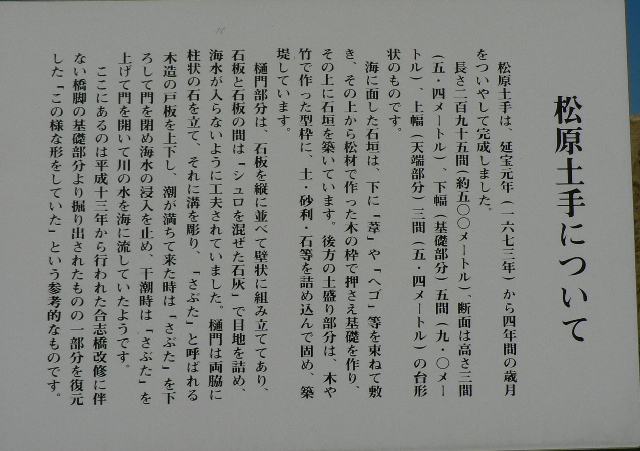 松原土手について
松原土手は、延宝元年（一六七三年）から四年間の歳月
をついやして完成しました。
長さ二百九十五間（約五〇〇メートル）、断面は高さ三間
（五・四メートル）、下幅（基礎部分）五間（九・〇メー
トル）、上幅（天端部分）三間（五・四メートル）の台形
状のものです。
海に面した石垣は、下に「葦」や「ヘゴ」等を束ねて敷
き、その上から松材で作った木の枠で押さえ基礎を作り、
その上に石垣を築いています。後方の土盛り部分は、木や
竹で作った型枠に、土・砂利・石等を詰め込んで固め、築
堤しています。
樋門部分は、石板を縦に並べて壁状に組み立ててあり、
石板と石板の間は「シュロを混ぜた石灰」で目地を詰め、
海水が入らないように工夫されていました。樋門は両脇に
柱状の石を立て、それに溝を彫り、「さぶた」と呼ばれる
木造の戸板を上下し、潮が満ちて来た時は「さぶた」を下
ろして門を閉め海水の浸入を止め、干潮時は「さぶた」を
上げて門を開いて川の水を海に流していたようです。
ここにあるのは平成十三年から行われた合志橋改修に伴
ない橋脚の基礎部分より掘り出されたものの一部分を復元
した「この様な形をしていた」という参考的なものです。